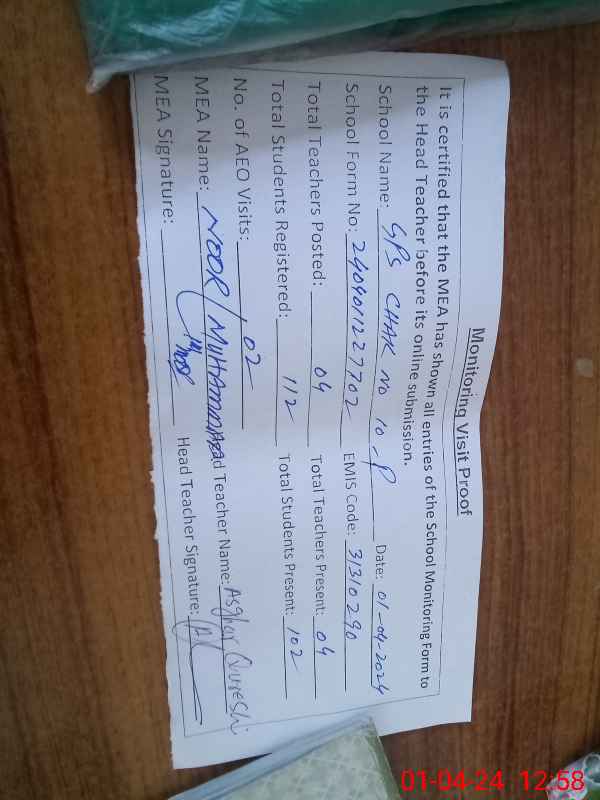 Monitoring Visit Proof
It is certified that the MEA has shown all entries of the School Monitoring Form to
the Head Teacher before its online submission.
School Name: GPS CHAK NO 10-P Date: 01-04-2024
School Form No: 240401227702 EMIS Code: 31310290
Total Teachers Posted: 04 Total Teachers Present: 04
Total Students Registered: 112 Total Students Present: 102
No. of AEO Visits: 02
MEA Name: NOOR MUHAMMAD Head Teacher Name: Asghar Qureshi
MEA Signature: Head Teacher Signature:
01-04-24 12:58